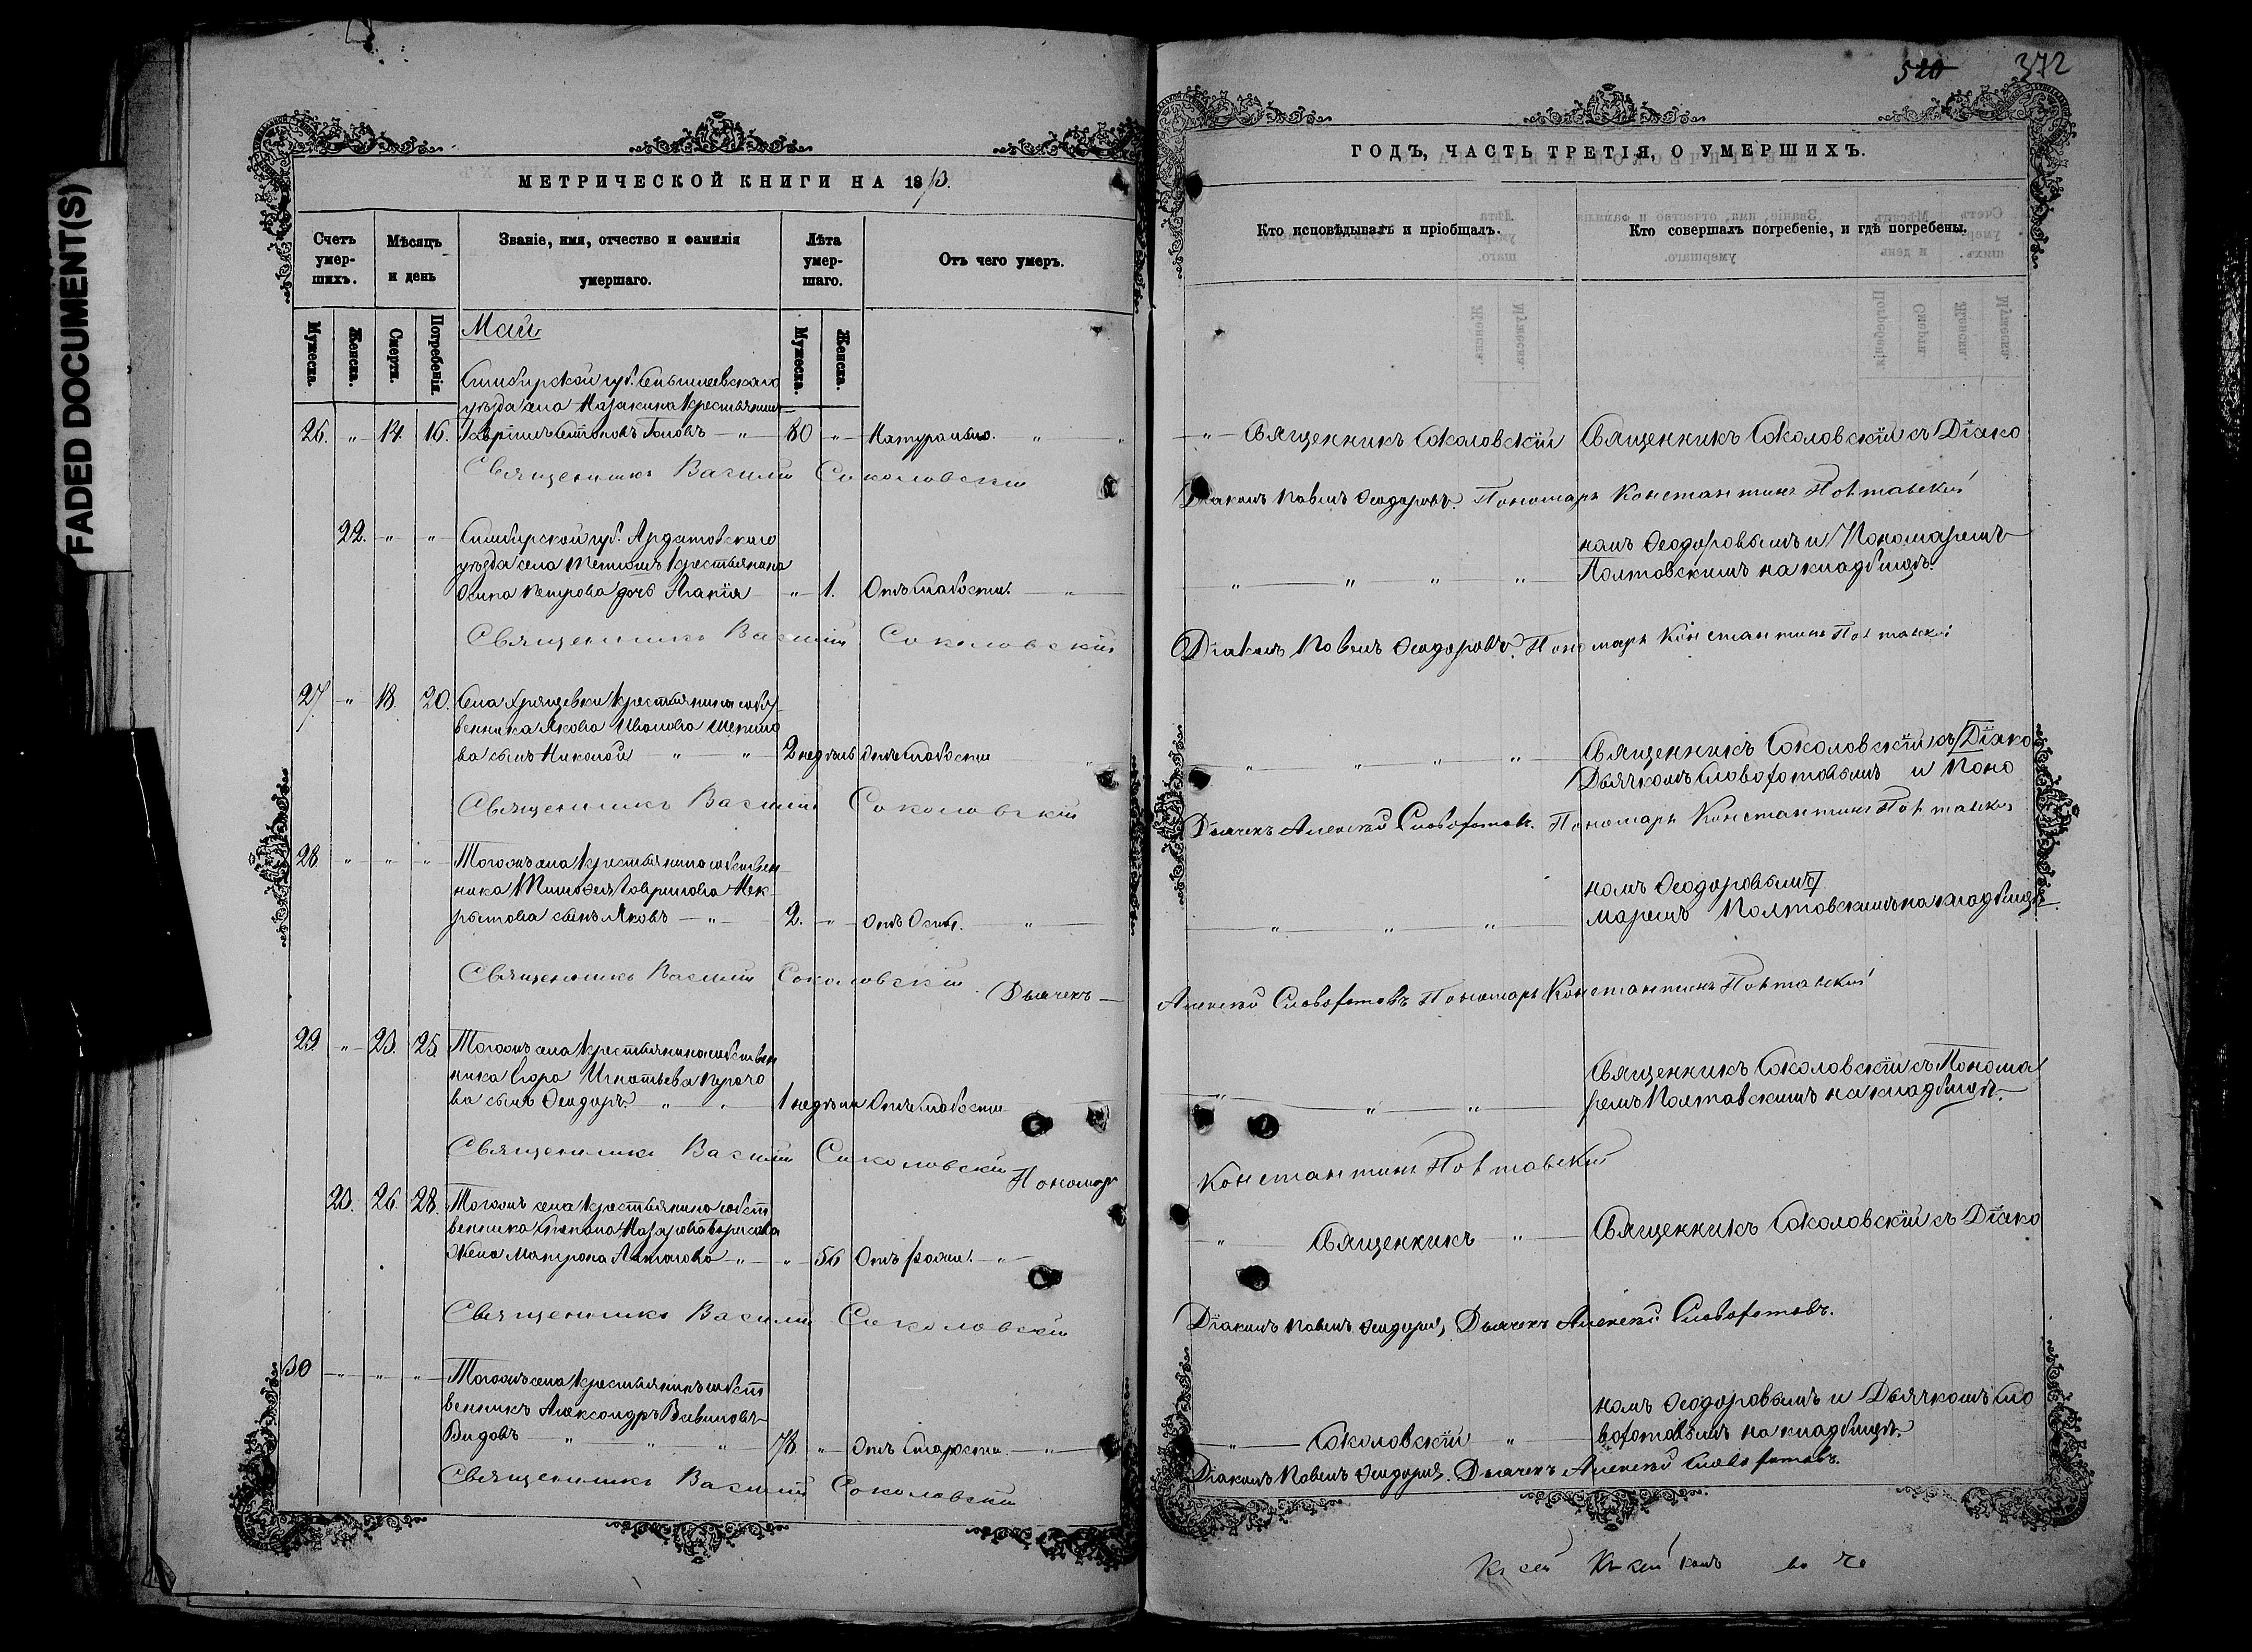 FADED DOCUMENT(S)
МЕТРИЧЕСКОЙ КНИГИ НА 18
Счетъ умер-шихъ.
Мѣсяцъ и день
Званіе, имя, отчество и фамилія умершаго.
Лѣта умер-шаго.
Отъ чего умеръ.
Мужеска.
Женска.
Смерти.
Погребенія.
Мужеска.
Женска.
Май
Симбирской губ. Сенгилеевскаго
уѣзда села Мазакина крестьянинъ
26. " 14. 16. " 80 " Натурально. "
Священникъ Василій Соколовскій
22. " " Симбирской губ. Ардатовскаго
уѣзда села крестьянина
Осипа Петрова дочь " 1. Отъ слабости. "
Священникъ Василій Соколовскій
27. " 18. 20. Села Хрящевки крестьянина собст
венника Якова Иванова Шепило
ва сынъ Николай " " 2 недѣль Отъ слабости
Священникъ Василій Соколовскій
28. " " " Тогожъ села крестьянина собствен
ника Тимофея Гаврилова Нек
растова сынъ Яковъ " 2. " Отъ Оспы. "
Священникъ Василій Соколовскій Дьячекъ
29 " 23. 25. Тогожъ села крестьянина собствен
ника Егора Игнатьева
ва сынъ Ѳеодоръ. " " 1 недѣли Отъ слабости
Священникъ Василій Соколовскій Пономарь
23. 26. 28. Тогожъ села крестьянина собст
венника Степана Назарова Борисова
жена Матрона " " 56 Отъ "
Священникъ Василій Соколовскій
30 " " " Тогожъ села крестьянинъ собст
венникъ Александръ
Видовъ " " " 78. " Отъ старости. "
Священникъ Василій Соколовскій
520 372
ГОДЪ, ЧАСТЬ ТРЕТІЯ, О УМЕРШИХЪ.
Кто исповѣдывалъ и пріобщалъ.
Кто совершалъ погребеніе, и гдѣ погребены.
" Священникъ Соколовскій Священникъ Соколовскій съ Діако
Діаконъ Павелъ Ѳеодоровъ. Пономарь Константинъ Полтавскій
номъ Ѳеодоровымъ и Пономаремъ
" " " " Полтовскимъ на кладбищѣ.
Діаконъ Павелъ Ѳеодоровъ. Пономарь Константинъ Полтавскій
Священникъ Соколовскій съ Діако
" " " " Дьячкомъ Словохотовымъ и Поно
Дьячекъ Алексѣй Словохотовъ. Пономарь Константинъ Полтавскій
номъ Ѳеодоровымъ
" " " маремъ Полтовскимъ на кладбищѣ.
Алексѣй Словохотовъ Пономарь Константинъ Полтавскій
Священникъ Соколовскій съ Понома
" " " ремъ Полтавскимъ на кладбищѣ.
Константинъ Полтавскій
" Священникъ " Священникъ Соколовскій съ Діако
Діаконъ Павелъ Ѳеодоровъ, Дьячекъ Алексѣй Словохотовъ.
номъ Ѳеодоровымъ и Дьячкомъ Сло
" Соколовскій " вохотовымъ на кладбищѣ.
Діаконъ Павелъ Ѳеодоровъ. Дьячекъ Алексѣй Словохотовъ.